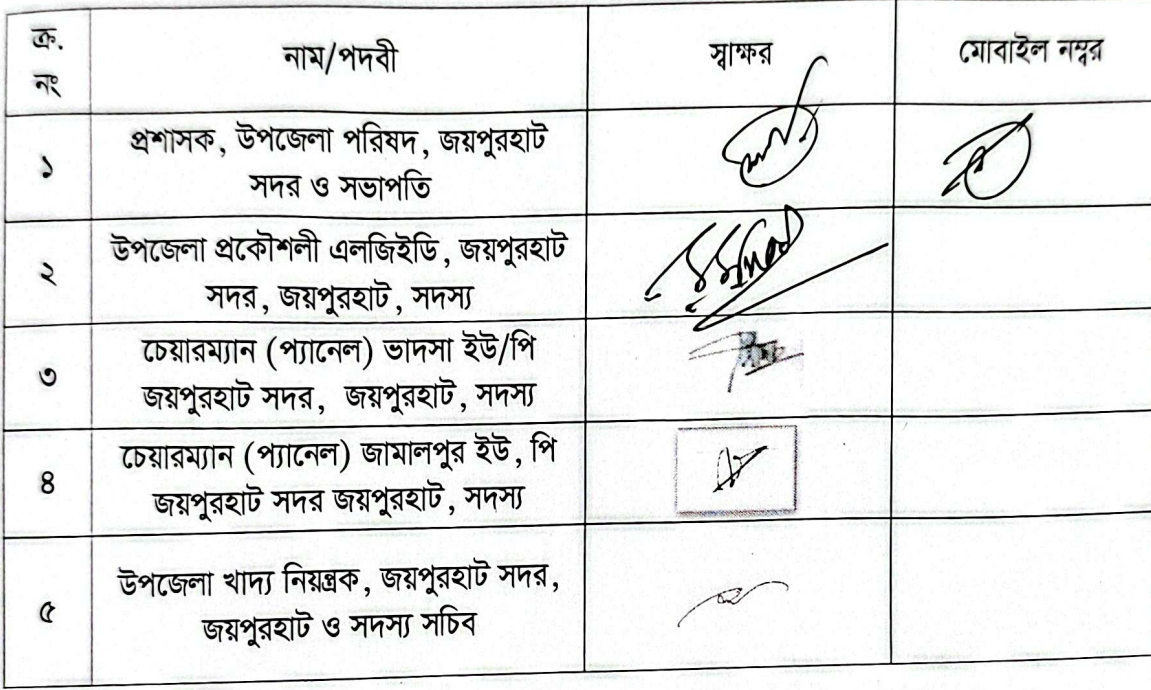 ক্র. নং নাম/পদবী স্বাক্ষর মোবাইল নম্বর
১ প্রশাসক, উপজেলা পরিষদ, জয়পুরহাট
সদর ও সভাপতি
২ উপজেলা প্রকৌশলী এলজিইডি, জয়পুরহাট
সদর, জয়পুরহাট, সদস্য
৩ চেয়ারম্যান (প্যানেল) ভাদসা ইউ/পি
জয়পুরহাট সদর, জয়পুরহাট, সদস্য
৪ চেয়ারম্যান (প্যানেল) জামালপুর ইউ, পি
জয়পুরহাট সদর জয়পুরহাট, সদস্য
৫ উপজেলা খাদ্য নিয়ন্ত্রক, জয়পুরহাট সদর,
জয়পুরহাট ও সদস্য সচিব